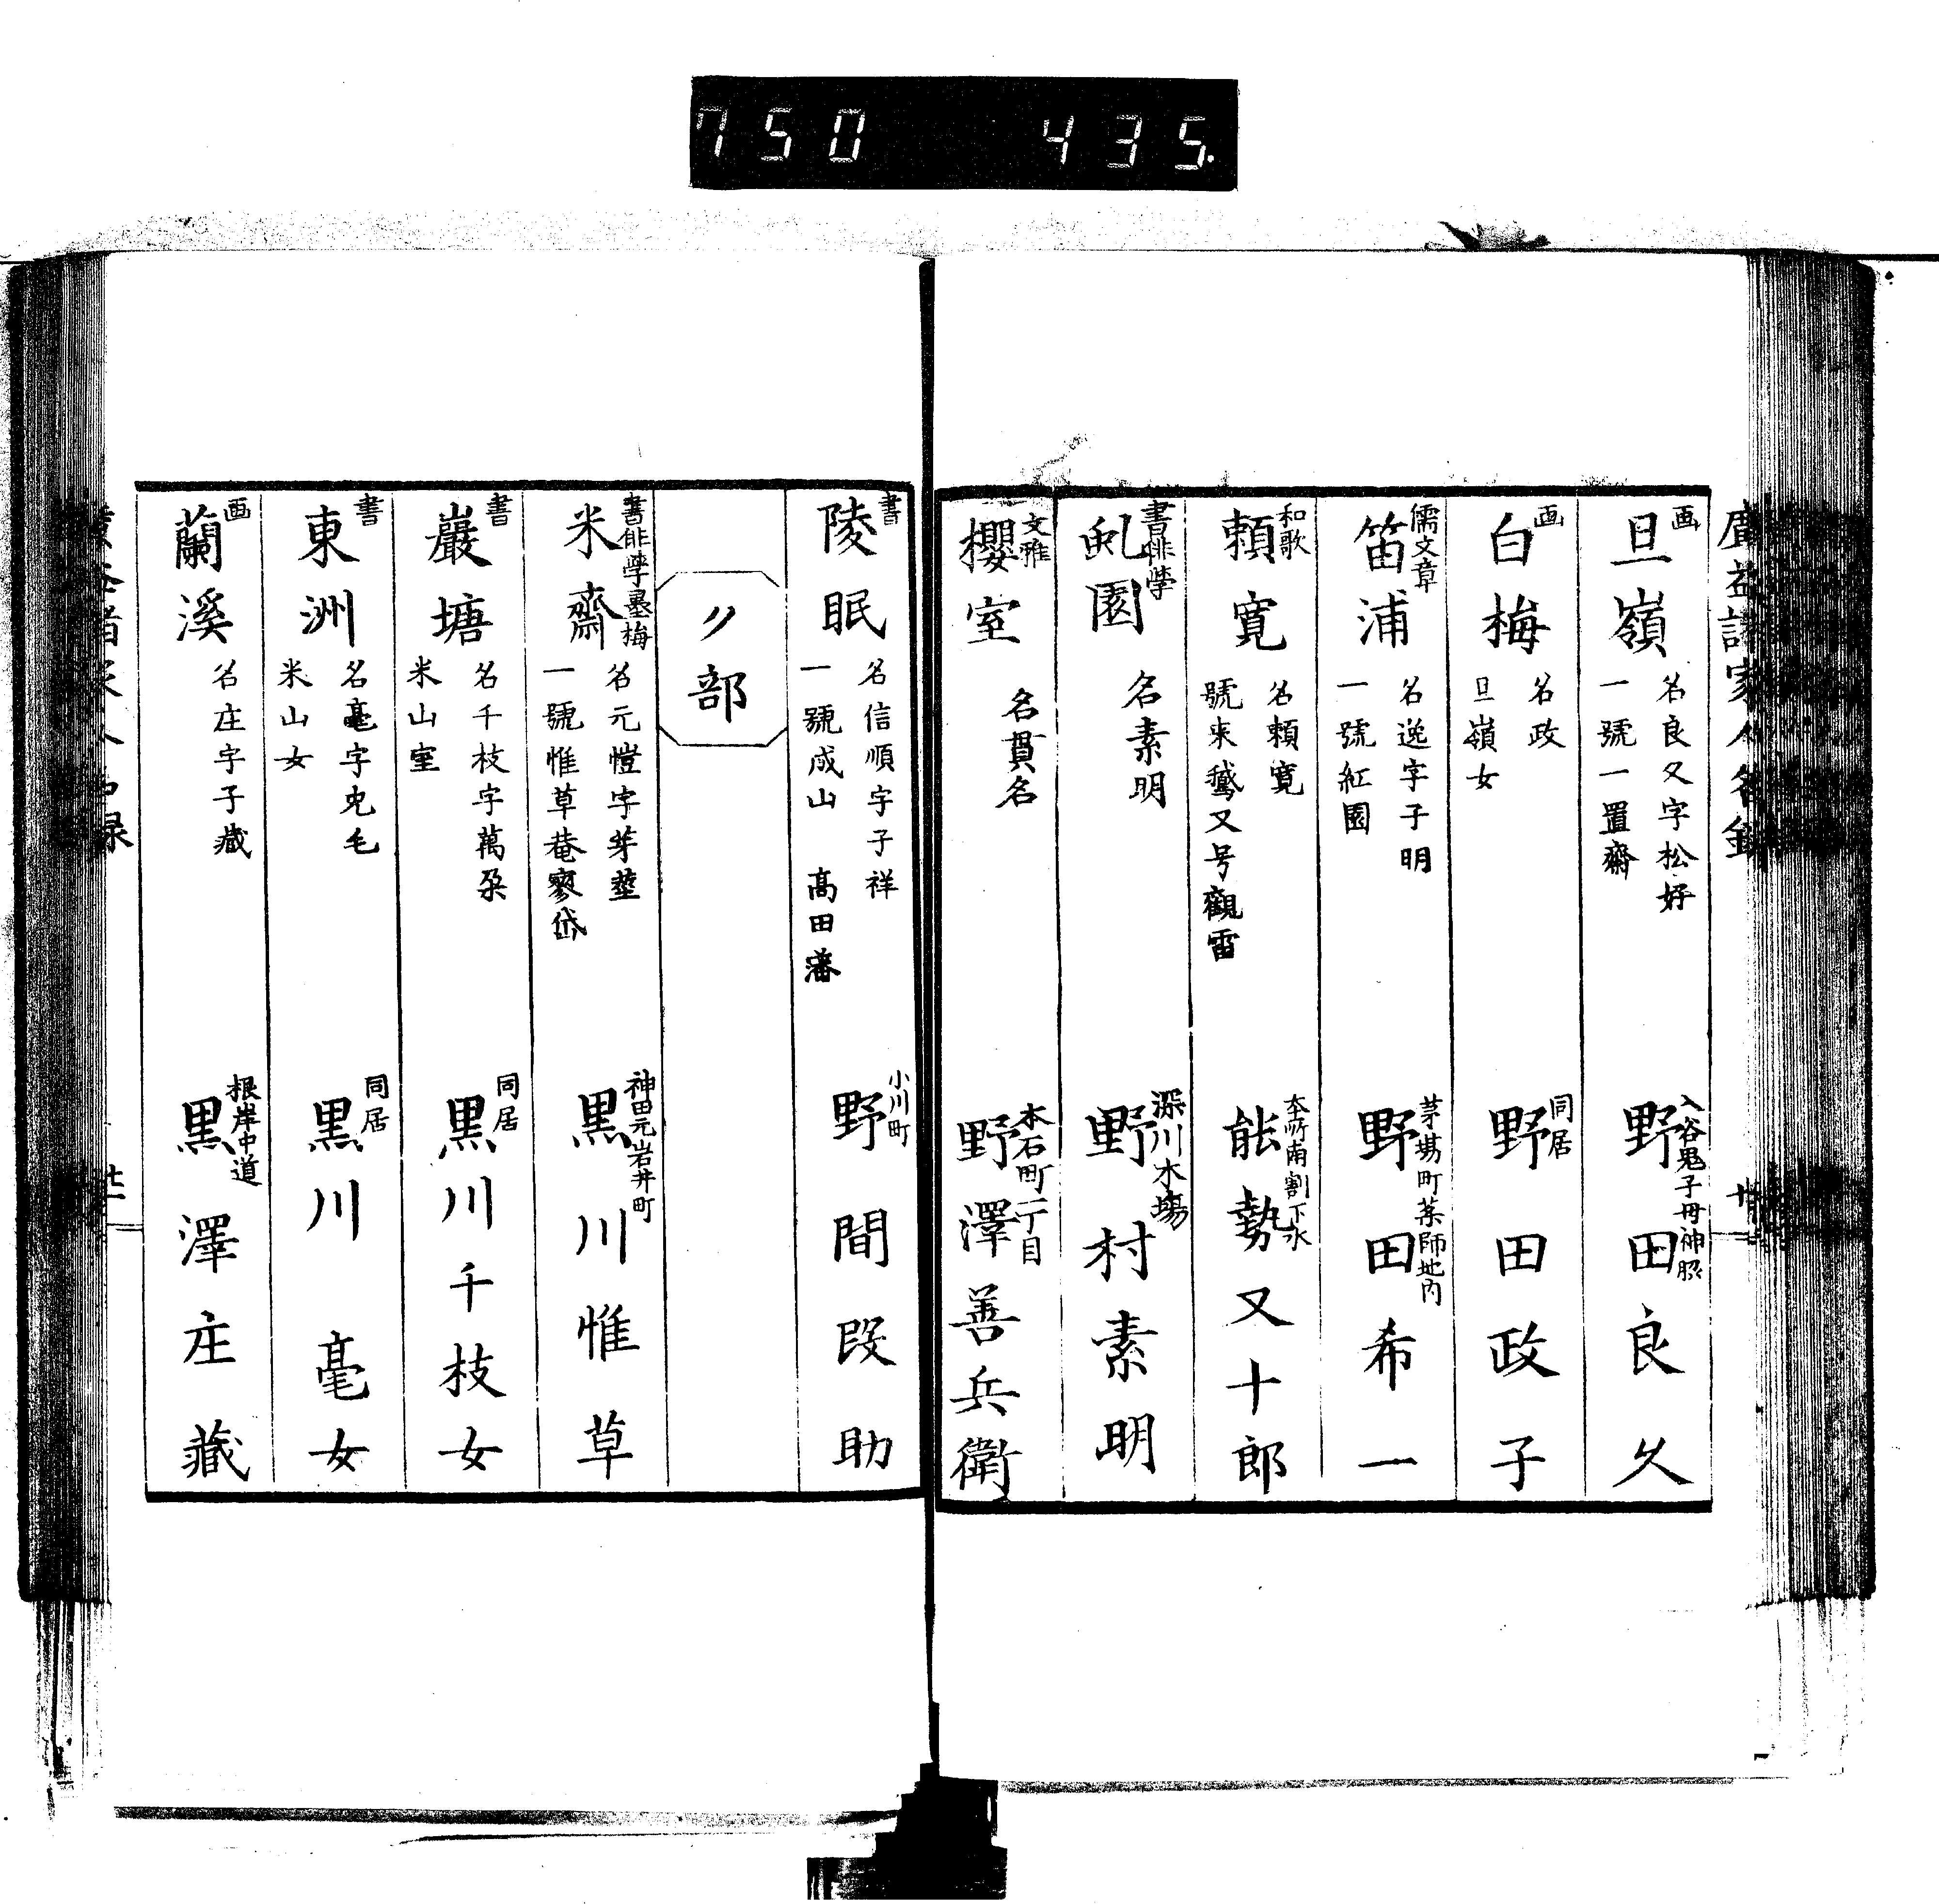 750 435.
廣益諸家人名録
画
旦嶺
名良久字松好
一號一置齋
入谷鬼子母神脇
野田良久
画
白梅
名政
旦嶺女
同居
野田政子
儒文章
笛浦
名逸字子明
一號紅園
茅場町薬師地内
野田希一
和歌
頼寛
名頼寛
號来鵞又号觀雷
本所南割下水
能勢又十郎
書俳学
園
名素明
深川木場
野村素明
文雅
櫻室
名貫名
本石町二丁目
野澤善兵衛
書
陵眠
名信順字子祥
一號成山 高田藩
小川町
野間段助
部
書俳学墨梅
米齋
名元愷字芽莖
一號惟草菴寥岱
神田元岩井町
黒川惟草
書
巖塘
名千枝字萬朶
米山室
同居
黒川千枝女
書
東洲
名毫字兎毛
米山女
同居
黒川毫女
画
蘭溪
名庄字子藏
根岸中道
黒澤庄藏